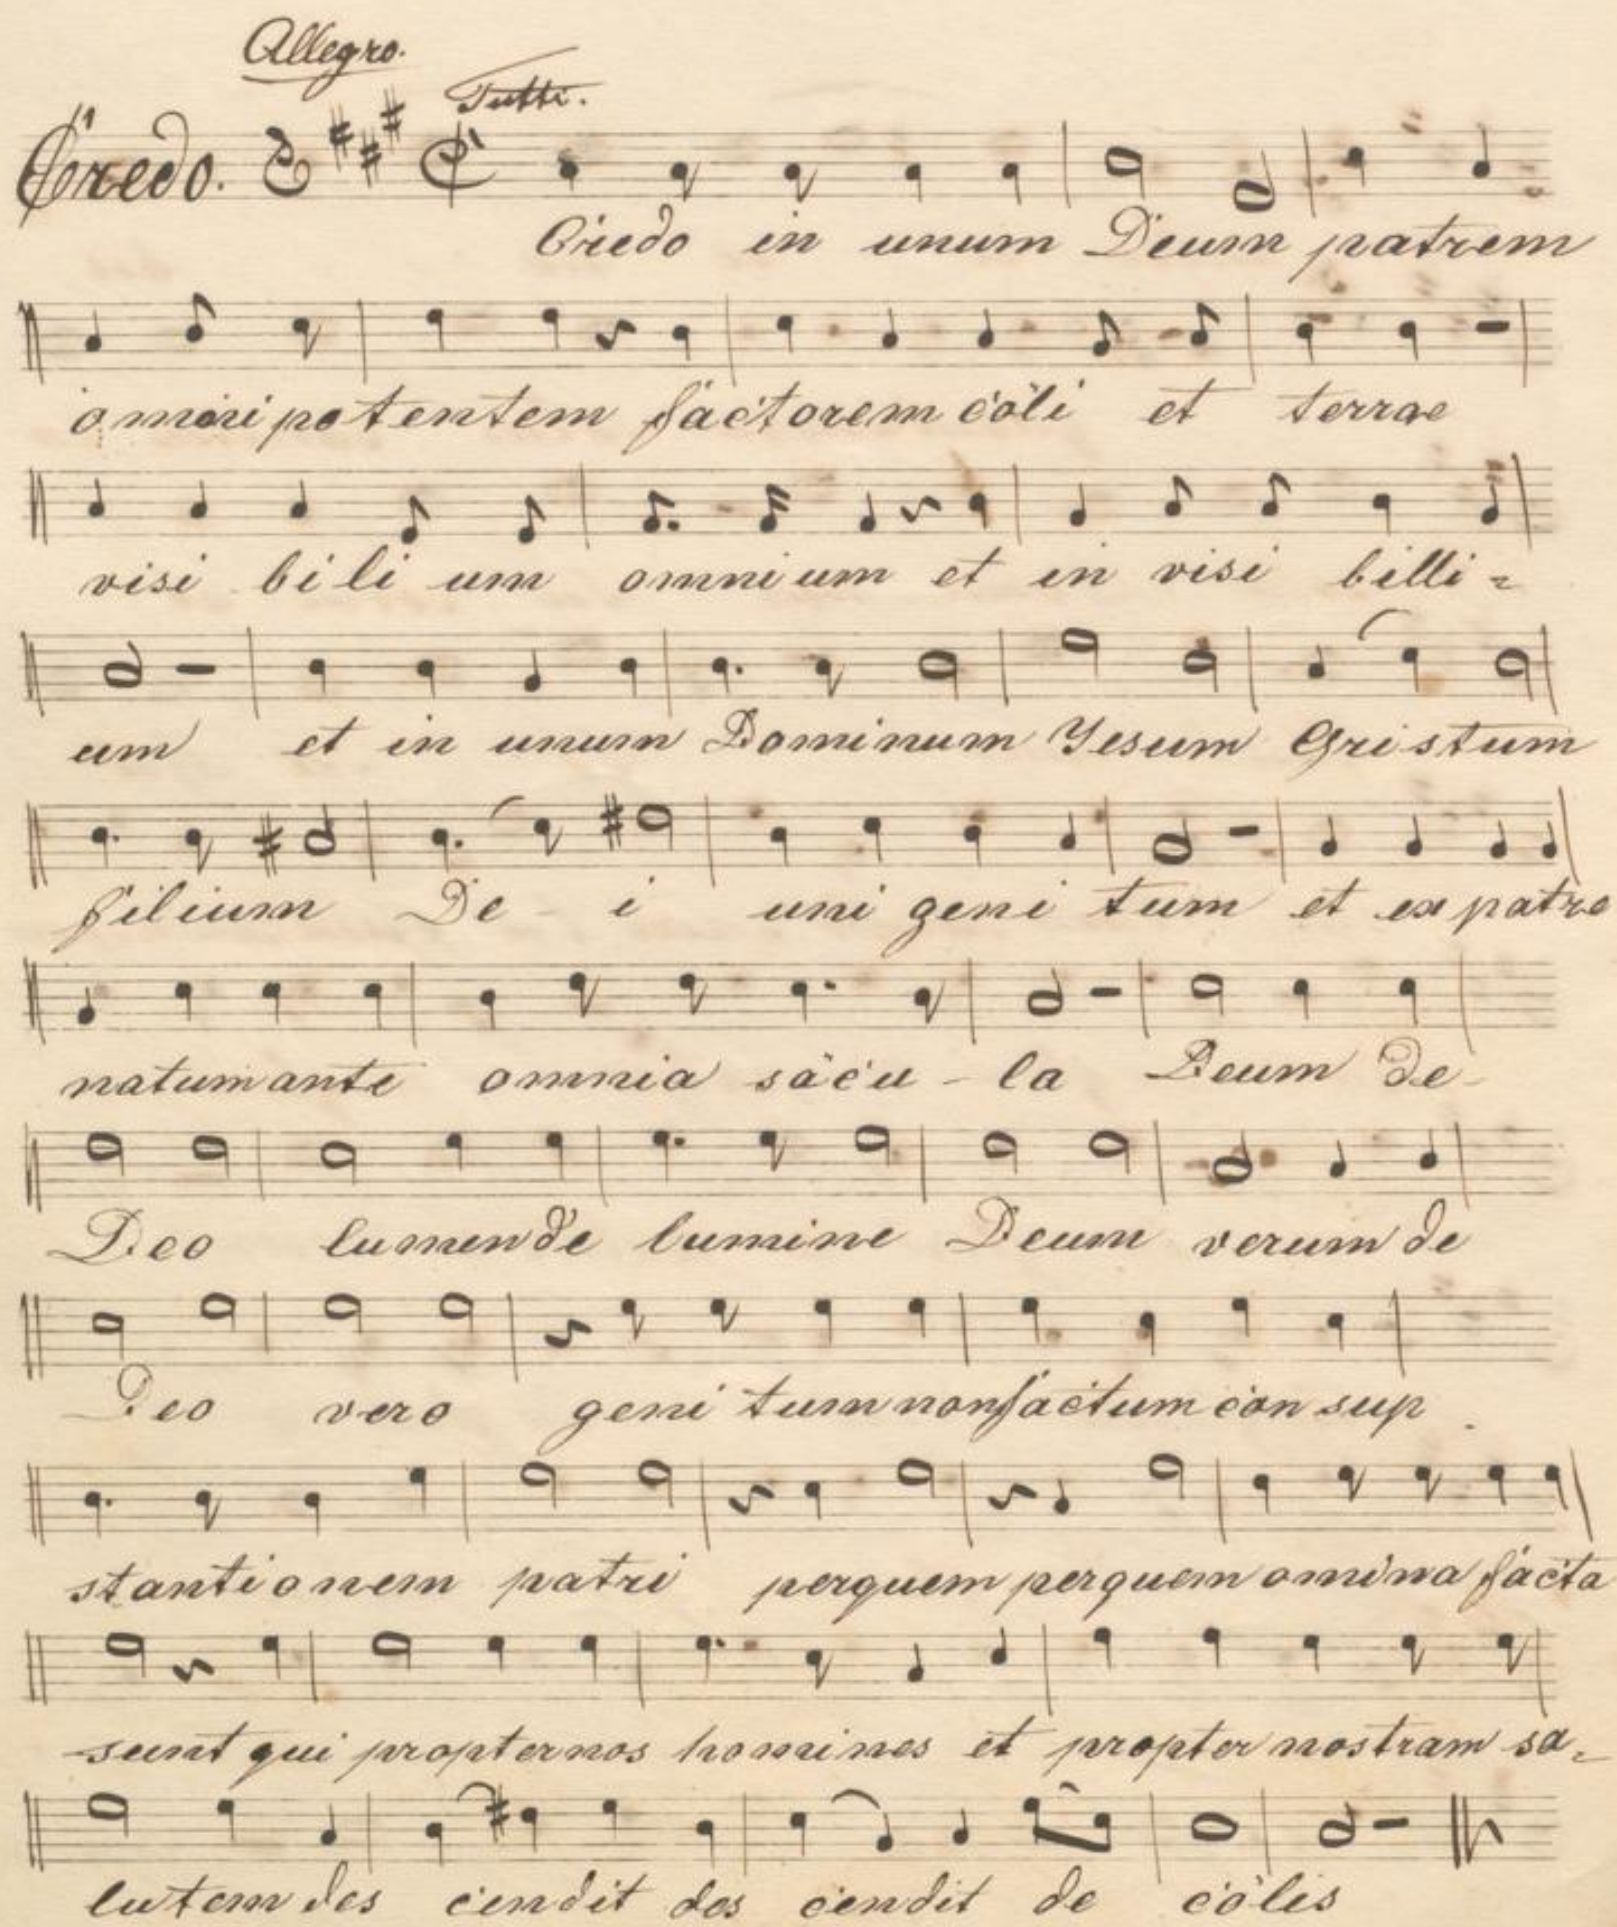 Allegro.
Tutti.
Credo.
Credo in unum Deum patrem
omnipotentem factorem cöli et terrae
visi bili um omnium et in visi billi =
um et in unum Dominum Yesum Gristum
filium De - i uni geni tum et ex patre
natum ante omnia säcu - la Deum de -
Deo lumen de lumine Deum verum de
Deo vero geni tum non factum con sup
stantionem patri perquem perquem omina facta
sunt qui propter nos homines et propter nostram sa =
lutem des cendit des cendit de cölis